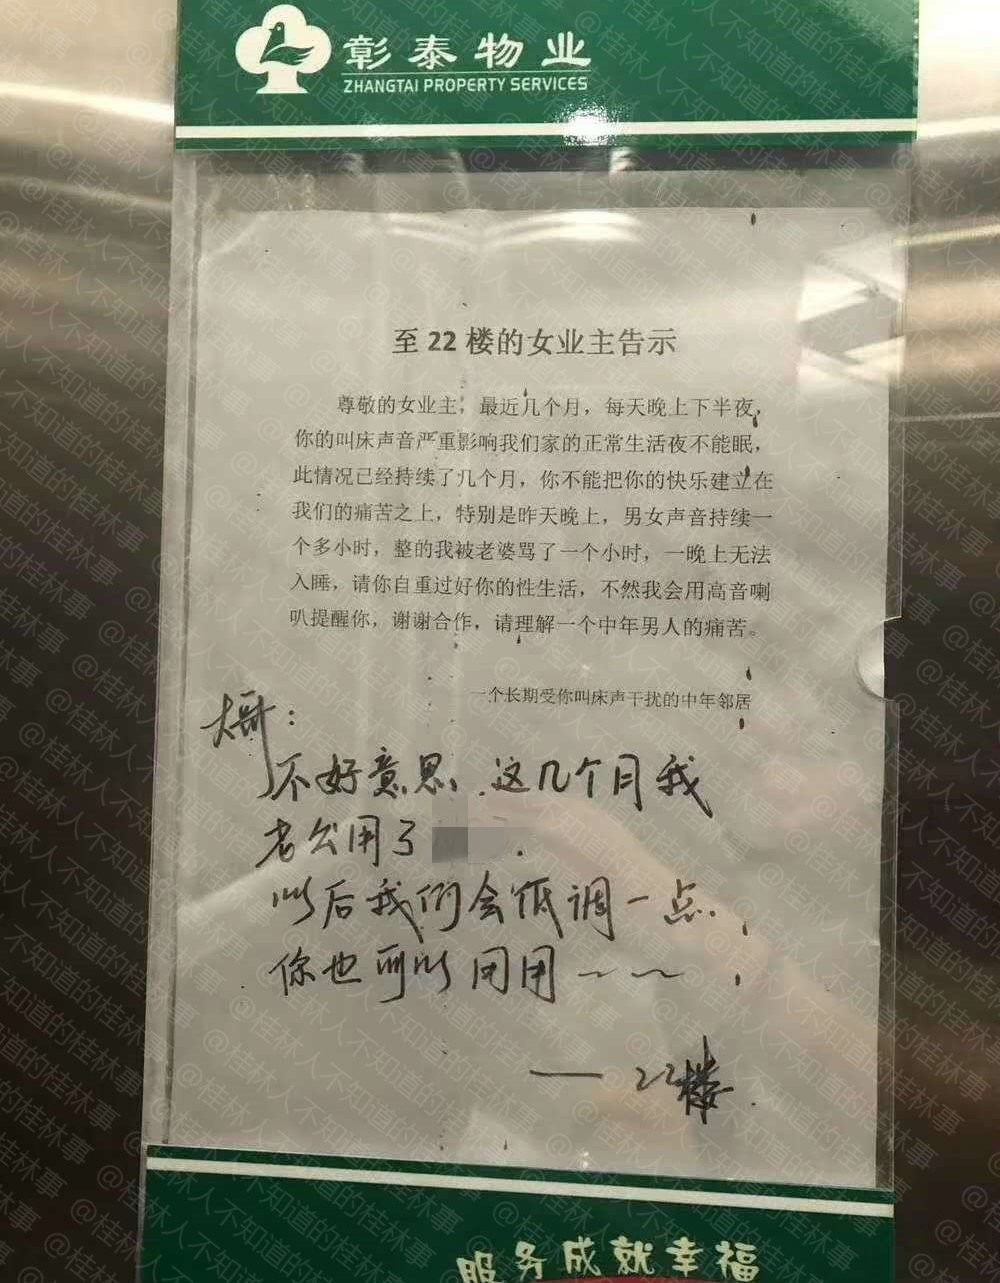 彰泰物业
ZHANGTAI PROPERTY SERVICES
至 22 楼的女业主告示
尊敬的女业主，最近几个月，每天晚上下半夜，
你的叫床声音严重影响我们家的正常生活夜不能眠，
此情况已经持续了几个月，你不能把你的快乐建立在
我们的痛苦之上，特别是昨天晚上，男女声音持续一
个多小时，整的我被老婆骂了一个小时，一晚上无法
入睡，请你自重过好你的性生活，不然我会用高音喇
叭提醒你，谢谢合作，请理解一个中年男人的痛苦。
一个长期受你叫床声干扰的中年邻居
大哥：
不好意思，这几个月我
老公用了 .
以后我们会低调一点.
你也可以用用～～
—— 22楼.
服务成就幸福
@桂林人不知道的桂林事